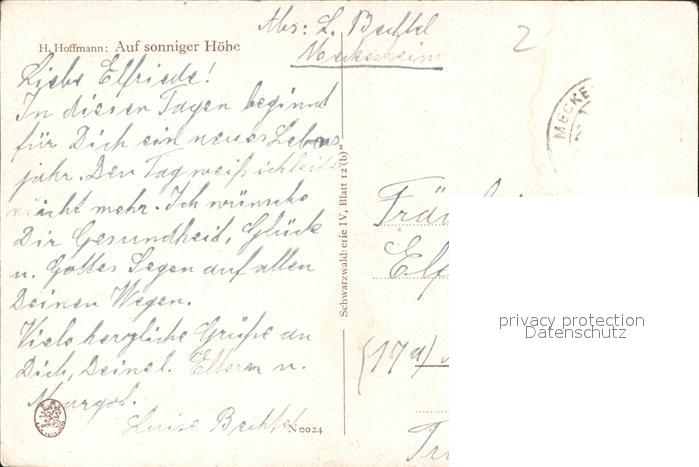 Abs: L. Bechtel
Meckesheim
2
H. Hoffmann: Auf sonniger Höhe
Liebe Elfriede!
In diesen Tagen beginnt
für Dich ein neues Lebens
jahr. Den Tag weiß ich leider
nicht mehr. Ich wünsche
Dir Gesundheit, Glück
u. Gottes Segen auf allen
Deinen Wegen.
Viele herzliche Grüße an
Dich, Deine l. Eltern u.
Margot.
Luise Bechtel
N 0024
Schwarzwaldserie IV, Blatt 12 (b)
MECKE
Fräu
Elf
(17a)
privacy protection
Datenschutz